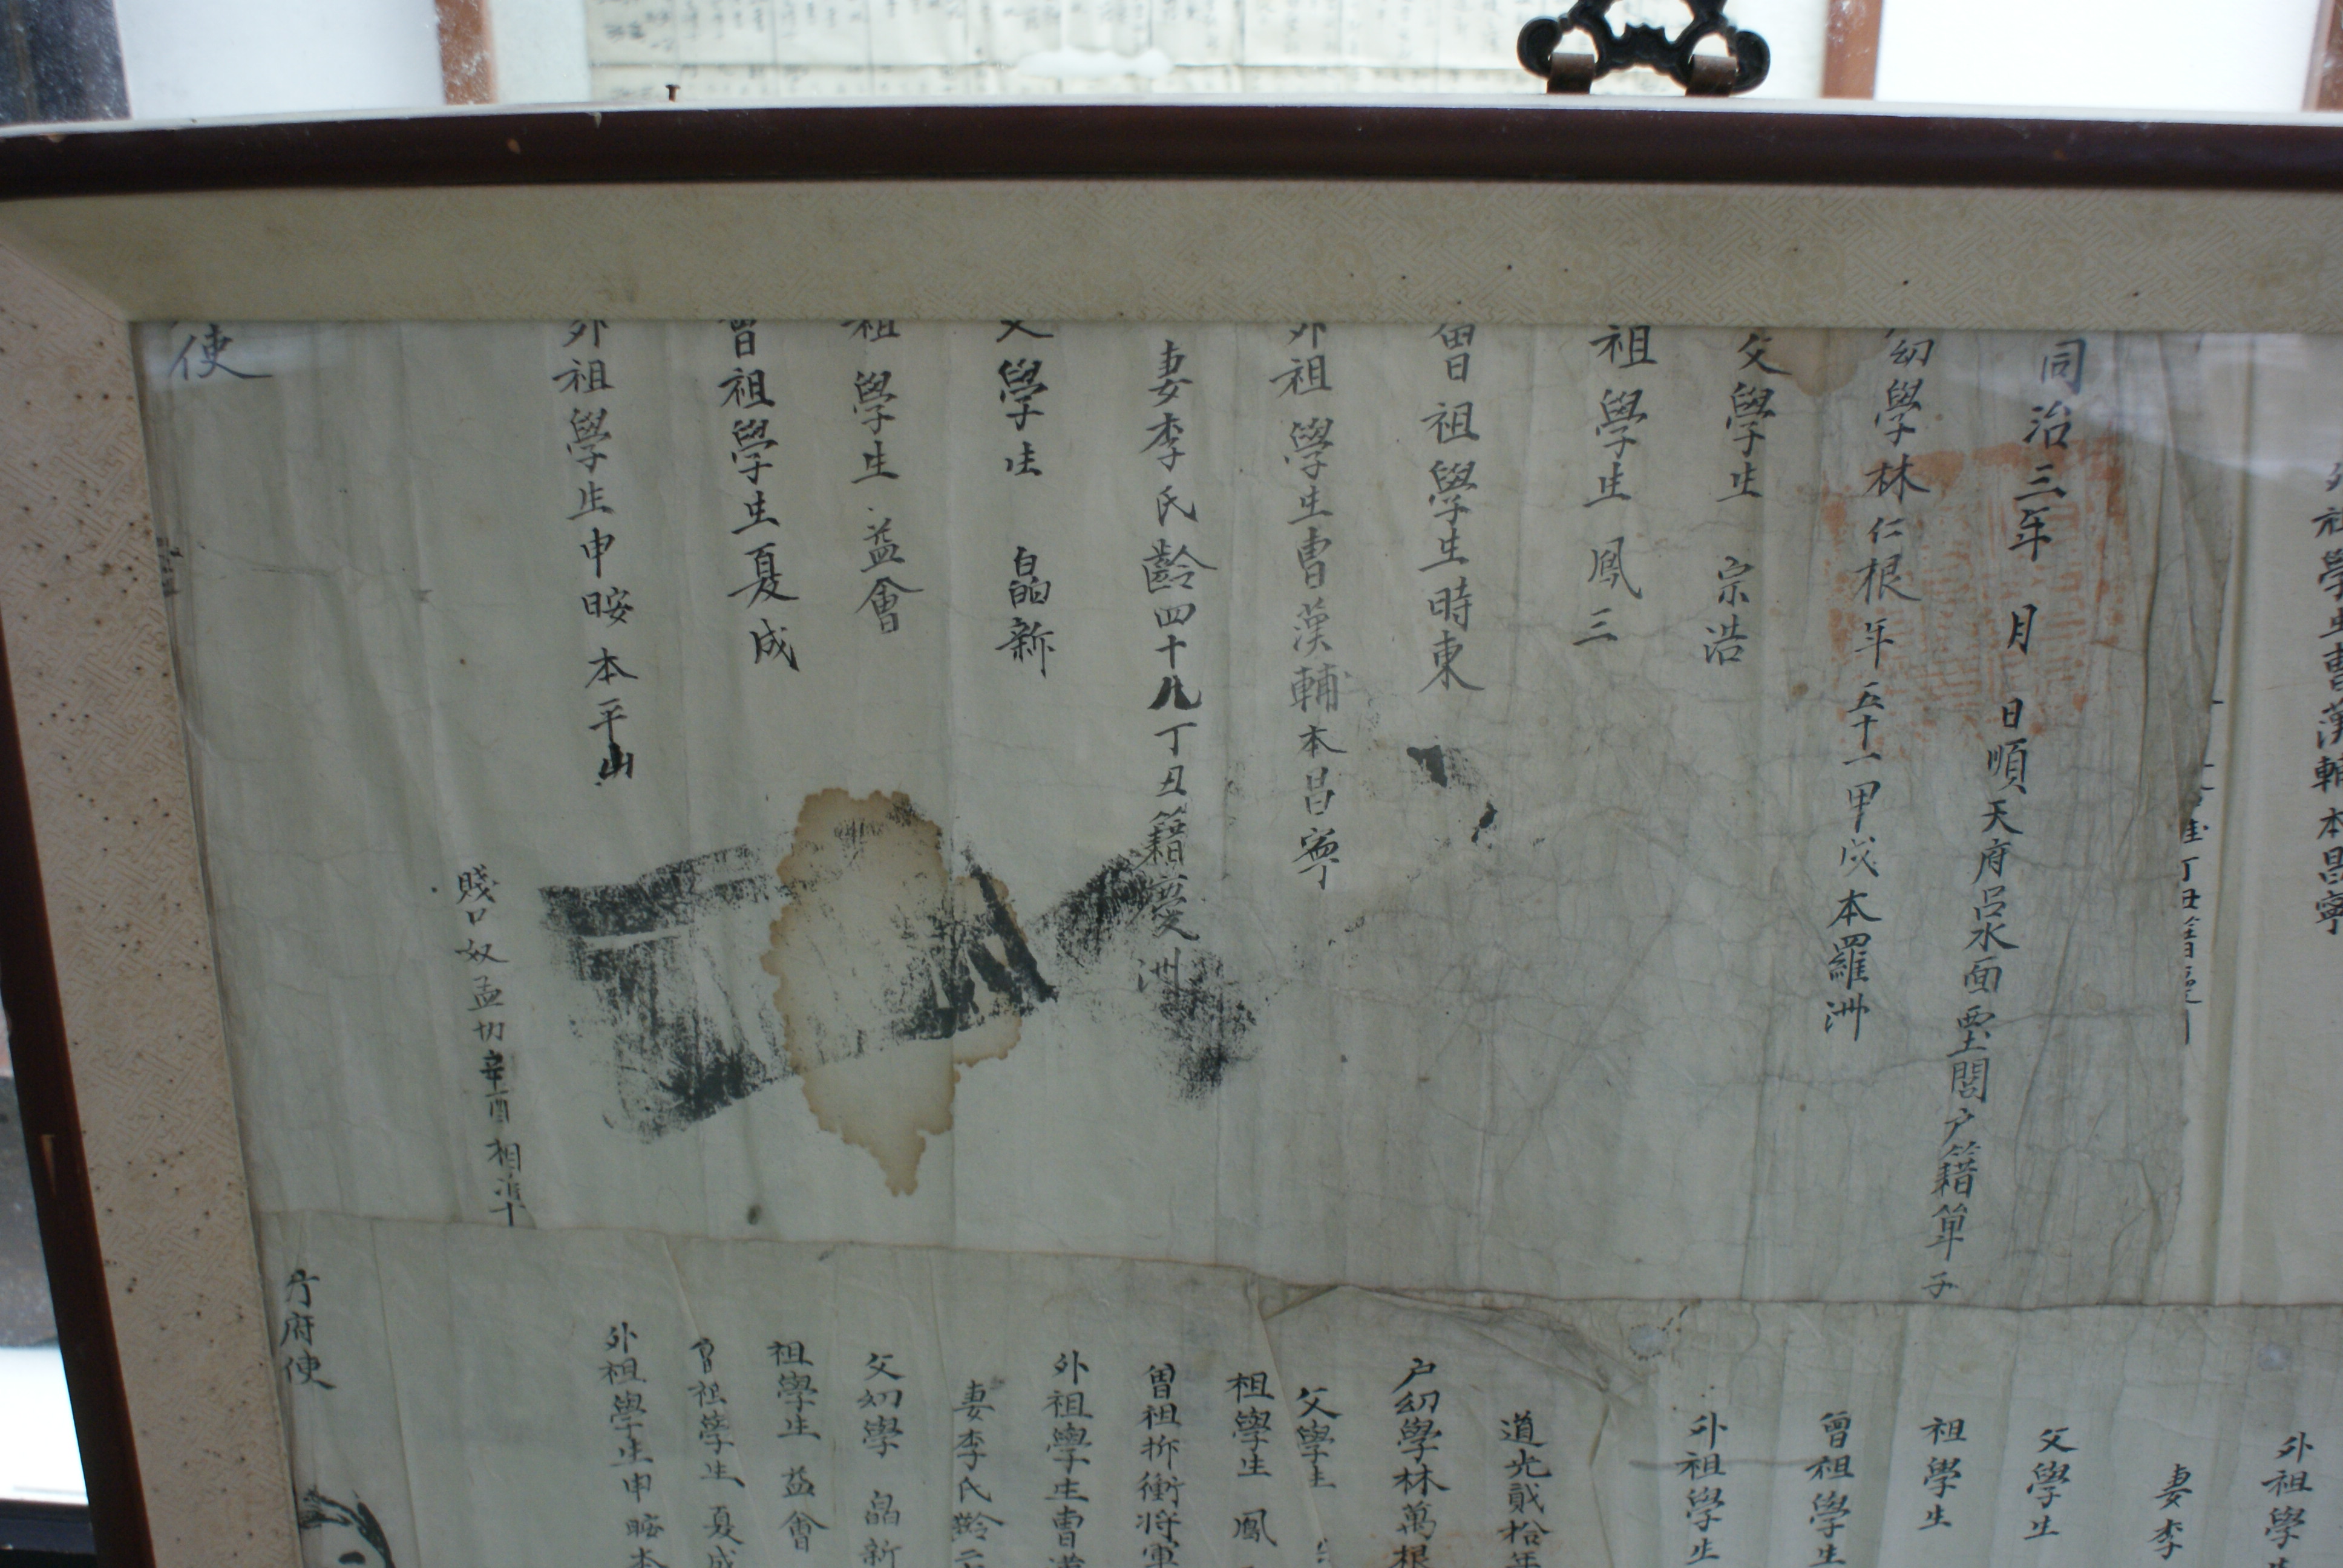 外祖學生曺漢輔本昌寧
丁丑籍慶
同治三年 月 日順天府呂水面 閭户籍單子
幼學林仁根年五十一甲戌本羅洲
父學生 宗浩
祖學生 鳳三
曾祖學生時東
外祖學生曺漢輔本昌寧
妻李氏齡四十八丁丑籍慶洲
父學生 皛新
祖學生 益會
曾祖學生夏成
外祖學生申晊本平山
賤口奴孟切辛酉相准十
使
外祖學
妻李
父學生
祖學生
曾祖學生
外祖學生
道光貳拾年
户幼學林萬根
父學生
祖學生 鳳
曾祖折衝將軍
外祖學生曺漢
妻李氏齡二
父幼學 皛新
祖學生 益會
曾祖學生 夏成
外祖學生申晊本
行府使